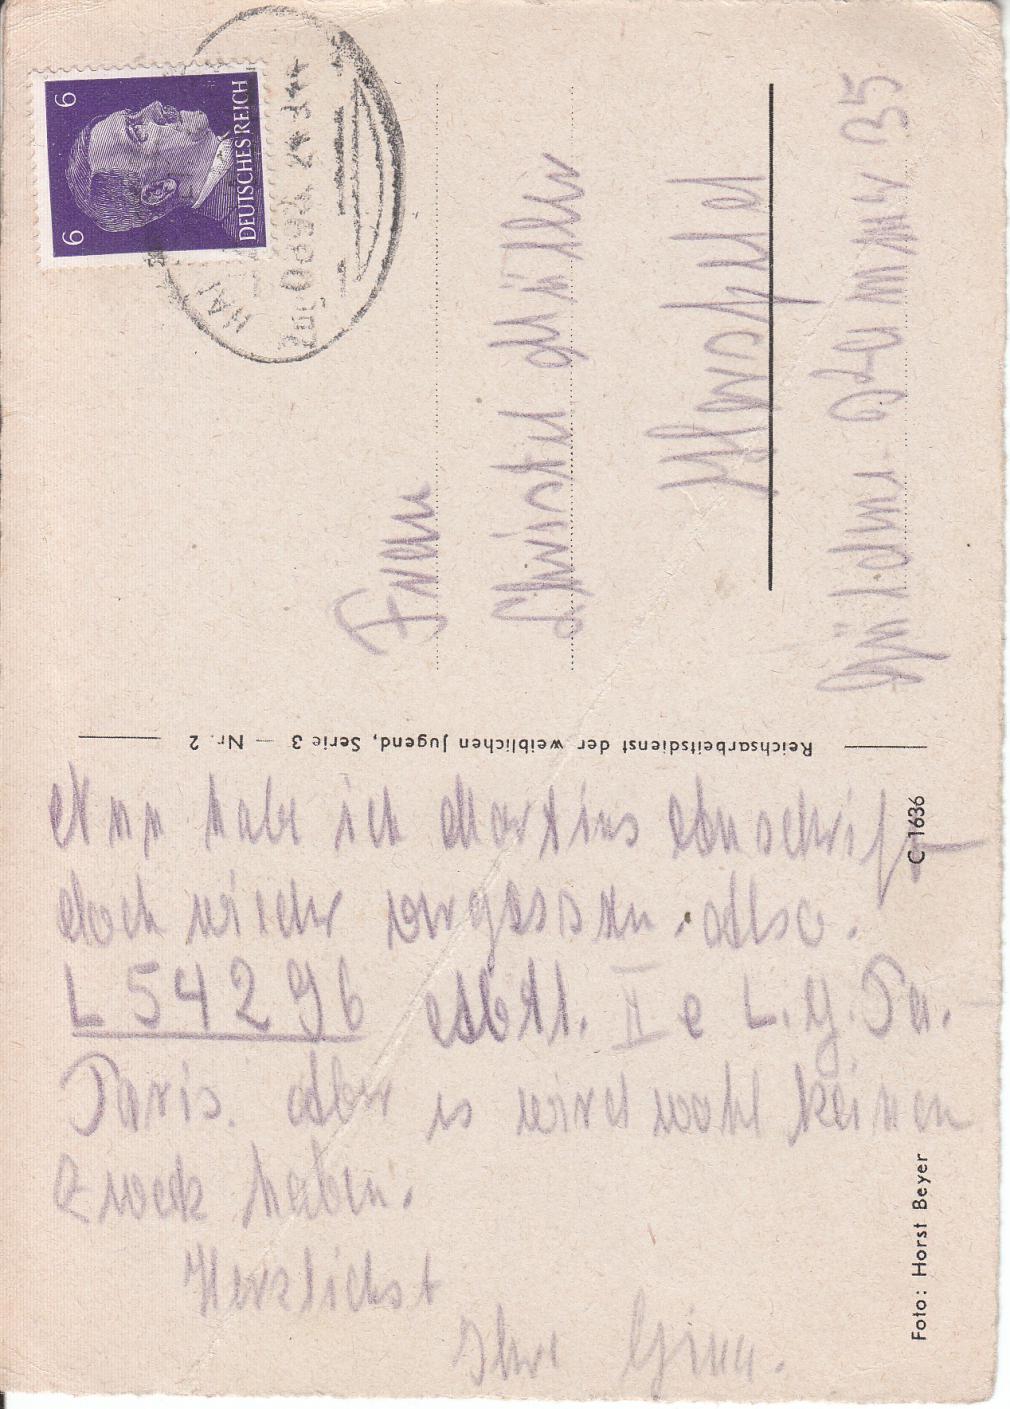 6 6
DEUTSCHES REICH
Zug
Frau
Christel Müller
Hersfeld
35
Reichsarbeitsdienst der weiblichen Jugend, Serie 3 — Nr. 2
Nun habe ich Martins Anschrift
doch wieder vergessen. Also.
L 54296 Abtl. II e L.G. Pa.
Paris. Aber es wird wohl keinen
Zweck haben.
Herzlichst
Ihre
C 1636
Foto: Horst Beyer